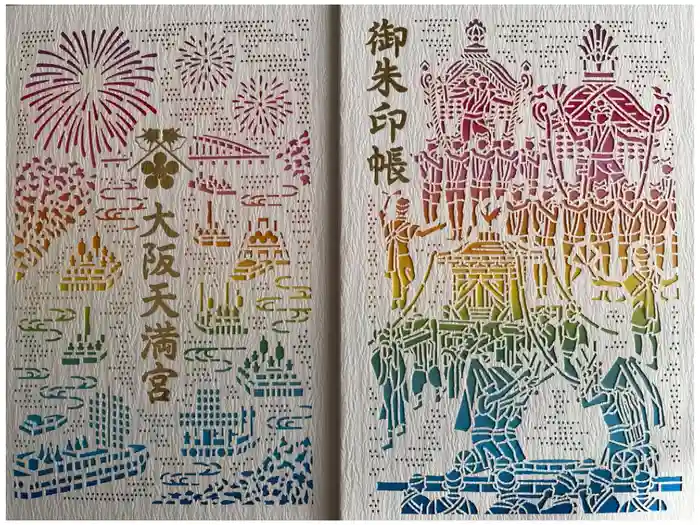 御朱印帳
大阪天満宮